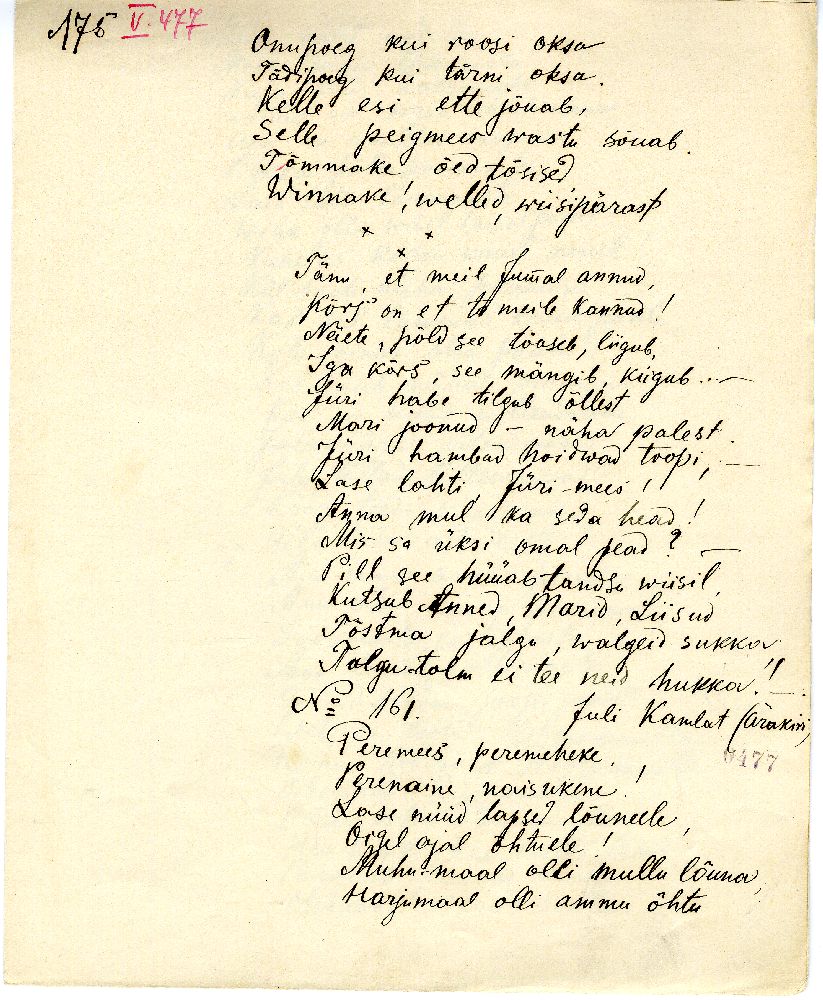 175 V. 477
Onupoeg kui roosi oksa
Tädipoeg kui tärni oksa.
Kelle esi ette jõuab,
Selle peigmees wastu sõuab.
Tõmmake õed tõsised
Winnake!, welled, wiisipärast
x x x
Tänu, et meil Jumal annud,
Kõrs on et to meile kannud!
Näete, põld see tõuseb, liigub,
Iga kõrs, see mängib, kiigub...—
Jüri habe tilgub õllest
Mari joonud – näha palest.
Jüri hambad hoidwad toopi, —
Lase lahti, Jüri-mees!
Anna mul ka seda head!
Mis sa üksi omal pead? —
Pill see hüüab tandsu wiisil,
Kutsub Anned, Marid, Liisud
Tõstma jalgu, walgeid sukka
Talgu-tolm ei tee neid hukka!! —.
No 161. Juli Kamlat (ärakiri)
Peremees, peremeheke,
0477
Perenaine, naisukene!
Lase nüüd lapsed lõuneele,
Õigel ajal õhtuele!
Muhu-maal olli mullu lõuna,
Harjumaal olli ammu õhtu